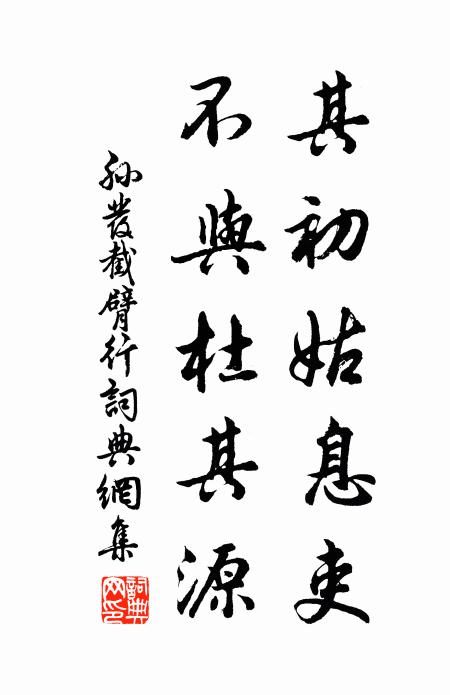 其初姑息吏
不與杜其源
孫發截臂行詞典網集
詞典網印